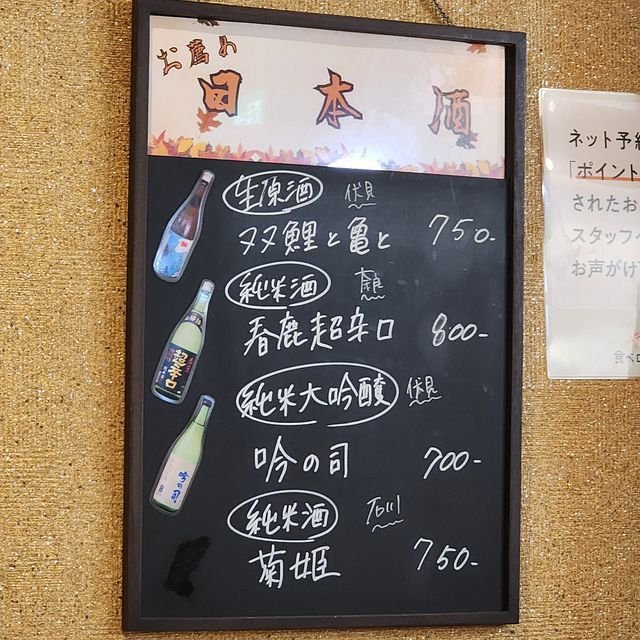 お薦め
日本酒
生原酒 伏見
ヌヌ鯉と亀と 750-
純米酒 奈良
春鹿超辛口 800-
純米大吟醸 伏見
吟の司 700-
純米酒 石川
菊姫 750-
超辛口
吟の司
ネット予約
「ポイント
されたお
スタッフへ
お声がけ
食べロ